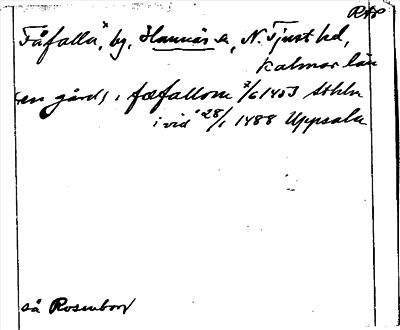 RAP
Fåfalla, by, Hannäs sn, N. Tjust hd,
Kalmar län
(en gård) i fæfallom 7/6 1403 Sthlm
i vid 28/1 1488 Uppsala
så Rosenborg